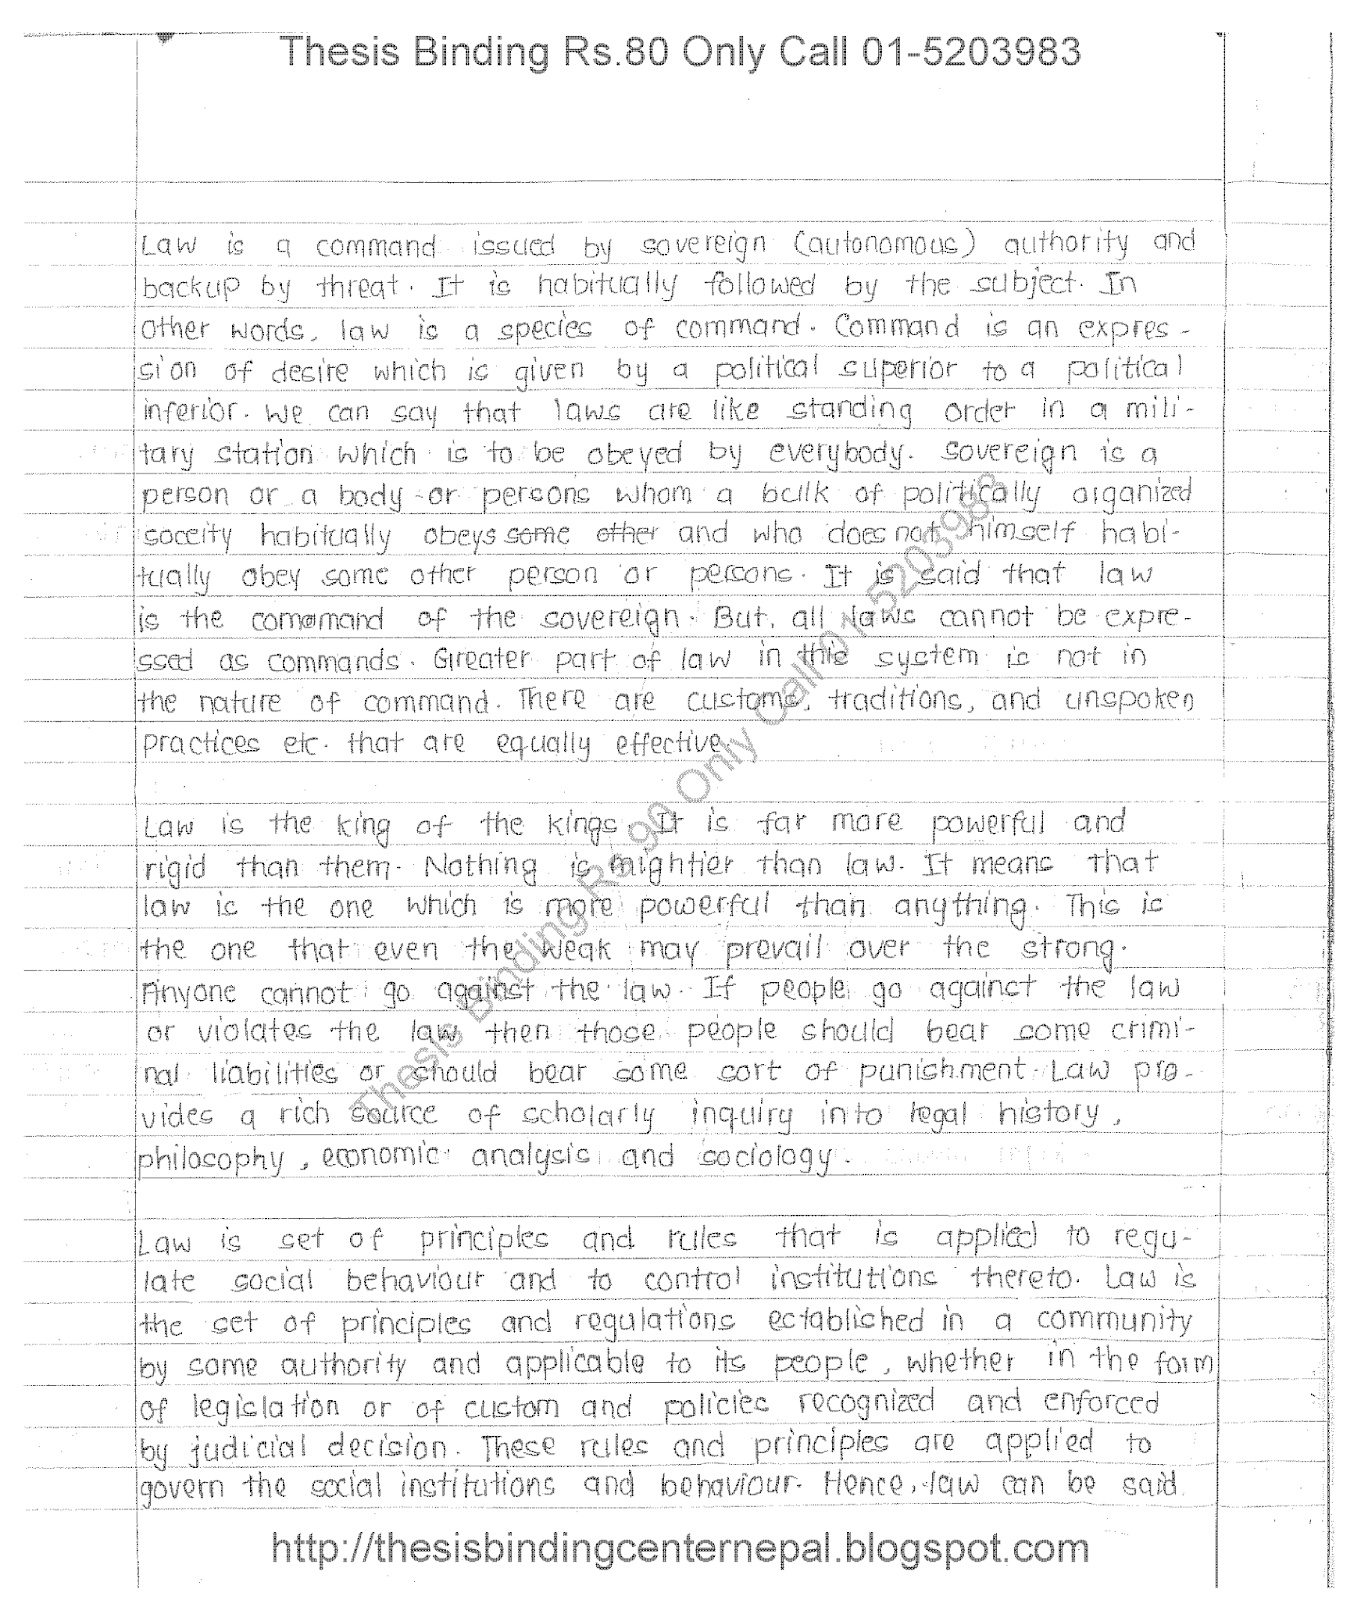 Thesis Binding Rs.80 Only Call 01-5203983
Law is a command issued by sovereign (autonomous) authority and
backup by threat. It is habitually followed by the subject. In
other words, law is a species of command. Command is an expres-
sion of desire which is given by a political superior to a political
inferior. We can say that laws are like standing order in a mili-
tary station which is to be obeyed by everybody. Sovereign is a
person or a body or persons whom a bulk of politically organized
socceity habitually obeys some other and who does not himself habi-
tually obey some other person or persons. It is said that law
is the comamand of the sovereign. But, all laws cannot be expre-
ssed as commands. Greater part of law in this system is not in
the nature of command. There are customs, traditions, and unspoken
practices etc. that are equally effective
Law is the king of the kings. It is far more powerful and
rigid than them. Nothing is mightier than law. It means that
law is the one which is more powerful than anything. This is
the one that even the weak may prevail over the strong.
Anyone cannot go against the law. If people go against the law
or violates the law then those people should bear some crimi-
nal liabilities or should bear some sort of punishment. Law pro-
vides a rich source of scholarly inquiry into legal history,
philosophy, economic analysis and sociology.
Law is set of principles and rules that is applied to regu-
late social behaviour and to control institutions thereto. Law is
the set of principles and regulations established in a community
by some authority and applicable to its people, whether in the form
of legislation or of custom and policies recognized and enforced
by judicial decision. These rules and principles are applied to
govern the social institutions and behaviour. Hence, law can be said
Thesis Binding Rs.90 Only Call 01-5203983
http://thesisbindingcenternepal.blogspot.com